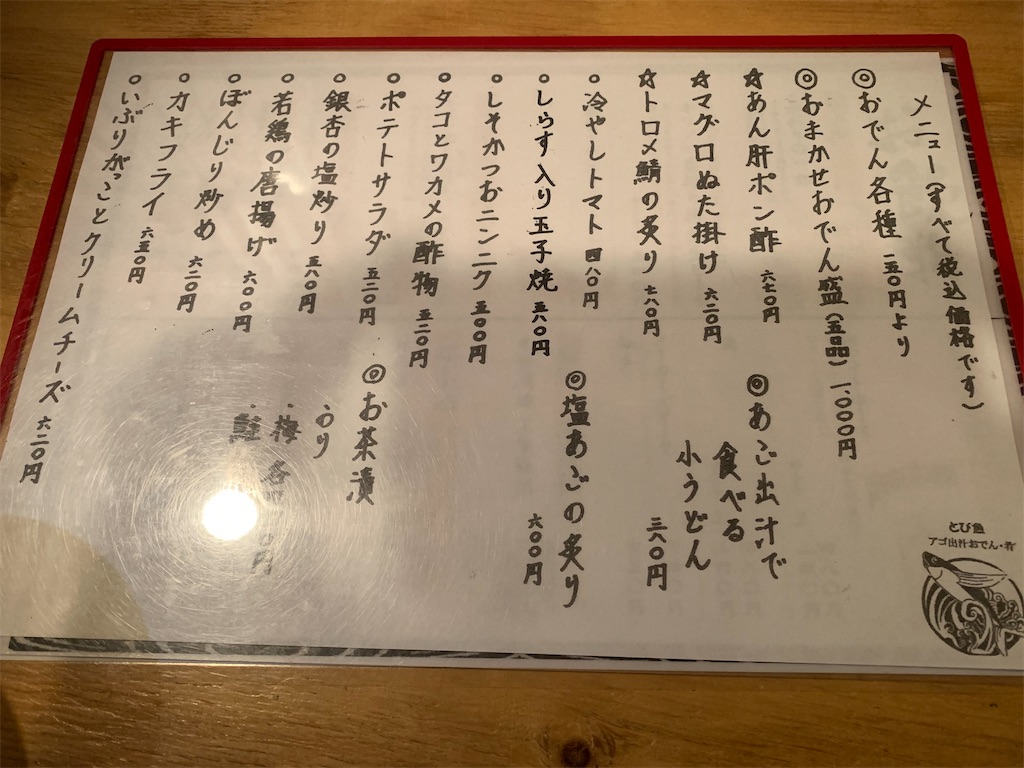 メニュー(すべて税込価格です)
◎おでん各種 一五〇円より
◎おまかせおでん盛(五品) 一、〇〇〇円
☆あん肝ポン酢 六七〇円
☆マグロぬた掛け 六二〇円
☆トロメ鯖の炙り 七八〇円
○冷やしトマト 四八〇円
○しらす入り玉子焼 五八〇円
○しそかつおニンニク 五〇〇円
○タコとワカメの酢物 五二〇円
○ポテトサラダ 五二〇円
○銀杏の塩炒り 五八〇円
○若鶏の唐揚げ 六〇〇円
○ぼんじり炒め 六二〇円
○カキフライ 六五〇円
○いぶりがっことクリームチーズ 六二〇円
◎あご出汁で
食べる
小うどん
三八〇円
◎塩あごの炙り
六〇〇円
◎お茶漬
のり
・梅 各
・鮭
円
とび魚
アゴ出汁おでん・肴